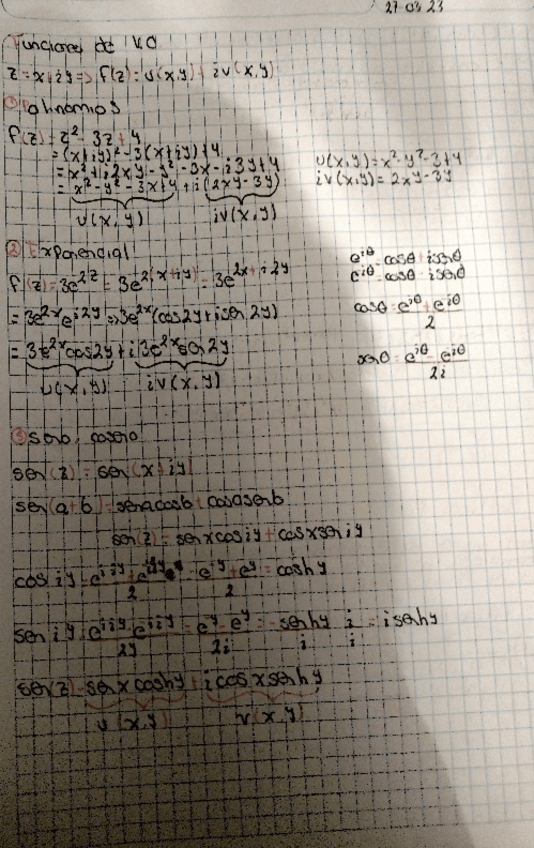 27 03 23
Funciones de VC
z = x+iy => f(z) = u(x,y) + iv(x,y)
① Polinomios
f(z) = z² - 3z + 4
= (x+iy)² - 3(x+iy) + 4
= x² + i2xy - y² - 3x - i3y + 4
= x² - y² - 3x + 4 + i(2xy - 3y)
u(x,y) iv(x,y)
u(x,y) = x² - y² - 3 + 4
iv(x,y) = 2xy - 3y
② Exponencial
f(z) = 3e^{2z} = 3e^{2(x+iy)} = 3e^{2x+i2y}
= 3e^{2x} e^{i2y} => 3e^{2x}(cos2y + isen2y)
= 3e^{2x}cos2y + i 3e^{2x}sen2y
u(x,y) iv(x,y)
e^{iθ} = cosθ + isenθ
e^{iθ} = cosθ - isenθ
cosθ = e^{iθ} + e^{iθ}
2
senθ = e^{iθ} - e^{iθ}
2i
③ seno, coseno
sen(z) = sen(x+iy)
sen(a+b) = senacosb + cosasenb
sen(z) = senxcosiy + cosxseniy
cosiy = e^{iiy} + e^{iiy} = e^{-y} + e^{y} = coshy
2 2
seniy = e^{iiy} - e^{iiy} = e^{-y} - e^{y} = -senhy i = isenhy
2y 2i i i
sen(z) = senxcoshy + icosxsenhy
u(x,y) v(x,y)